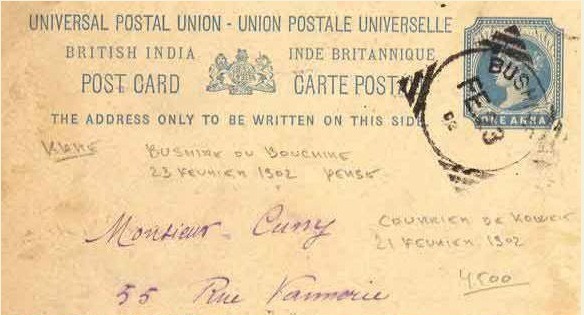 UNIVERSAL POSTAL UNION - UNION POSTALE UNIVERSELLE
BRITISH INDIA INDE BRITANNIQUE
POST CARD CARTE POSTA
THE ADDRESS ONLY TO BE WRITTEN ON THIS SIDE
ONE ANNA
BUSH
FE 23
BUSHIRE OU BOUCHIRE
23 FEVRIER 1902 PERSE
Monsieur Cuny
COURRIER DE KOWEIT
21 FEVRIER 1902
4500
55 Rue Vannerie